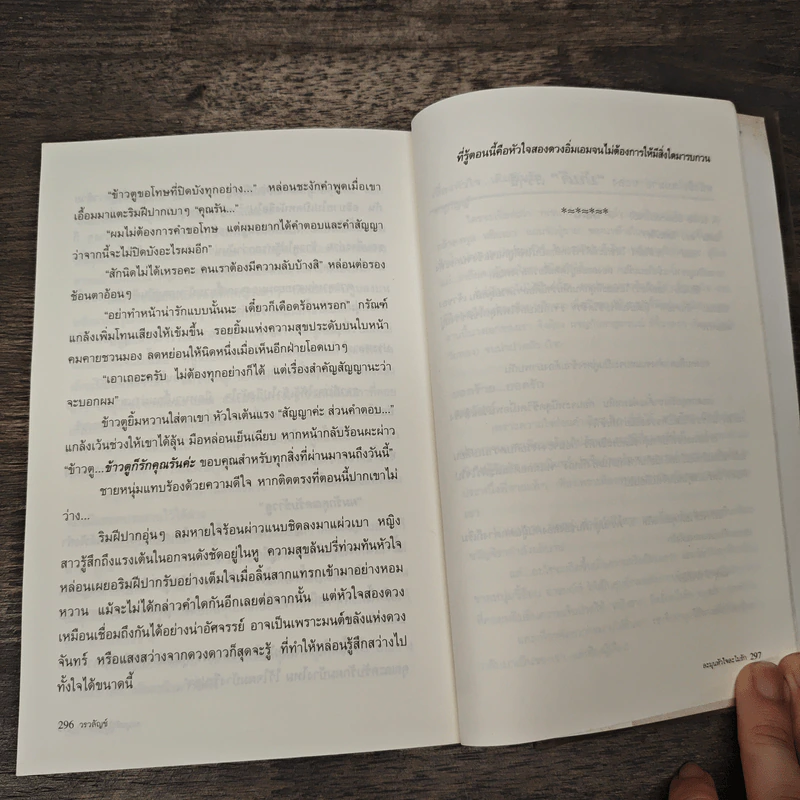 "ข้าวตูขอโทษที่ปิดบังทุกอย่าง..." หล่อนชะงักคำพูดเมื่อเขา
เอื้อมมาแตะริมฝีปากเบาๆ "คุณรัน..."
"ผมไม่ต้องการคำขอโทษ แต่ผมอยากได้คำตอบและคำสัญญา
ว่าจากนี้จะไม่ปิดบังอะไรผมอีก"
"สักนิดไม่ได้เหรอคะ คนเราต้องมีความลับบ้างสิ" หล่อนต่อรอง
ช้อนตาอ้อนๆ
"อย่าทำหน้าน่ารักแบบนั้นนะ เดี๋ยวก็เดือดร้อนหรอก" กรัณฑ์
แกล้งเพิ่มโทนเสียงให้เข้มขึ้น รอยยิ้มแห่งความสุขประดับบนใบหน้า
คมคายชวนมอง ลดหย่อนให้นิดหนึ่งเมื่อเห็นอีกฝ่ายโอดเบาๆ
"เอาเถอะครับ ไม่ต้องทุกอย่างก็ได้ แต่เรื่องสำคัญสัญญานะว่า
จะบอกผม"
ข้าวตูยิ้มหวานใส่ตาเขา หัวใจเต้นแรง "สัญญาค่ะ ส่วนคำตอบ..."
แกล้งเว้นช่วงให้เขาได้ลุ้น มือหล่อนเย็นเฉียบ หากหน้ากลับร้อนผะผ่าว
"ข้าวตู...ข้าวตูก็รักคุณรันค่ะ ขอบคุณสำหรับทุกสิ่งที่ผ่านมาจนถึงวันนี้"
ชายหนุ่มแทบร้องด้วยความดีใจ หากติดตรงที่ตอนนี้ปากเขาไม่
ว่าง...
ริมฝีปากอุ่นๆ ลมหายใจร้อนผ่าวแนบชิดลงมาแผ่วเบา หญิง
สาวรู้สึกถึงแรงเต้นในอกจนดังชัดอยู่ในหู ความสุขล้นปรี่ท่วมท้นหัวใจ
หล่อนเผยอริมฝีปากรับอย่างเต็มใจเมื่อลิ้นสากแทรกเข้ามาอย่างหอม
หวาน แม้จะไม่ได้กล่าวคำใดกันอีกเลยต่อจากนั้น แต่หัวใจสองดวง
เหมือนเชื่อมถึงกันได้อย่างน่าอัศจรรย์ อาจเป็นเพราะมนต์ขลังแห่งดวง
จันทร์ หรือแสงสว่างจากดวงดาวก็สุดจะรู้ ที่ทำให้หล่อนรู้สึกสว่างไป
ทั้งใจได้ขนาดนี้
296 วรวลัญช์
ที่รู้ตอนนี้คือหัวใจสองดวงอิ่มเอมจนไม่ต้องการให้มีสิ่งใดมารบกวน
*≈*≈*≈*
297